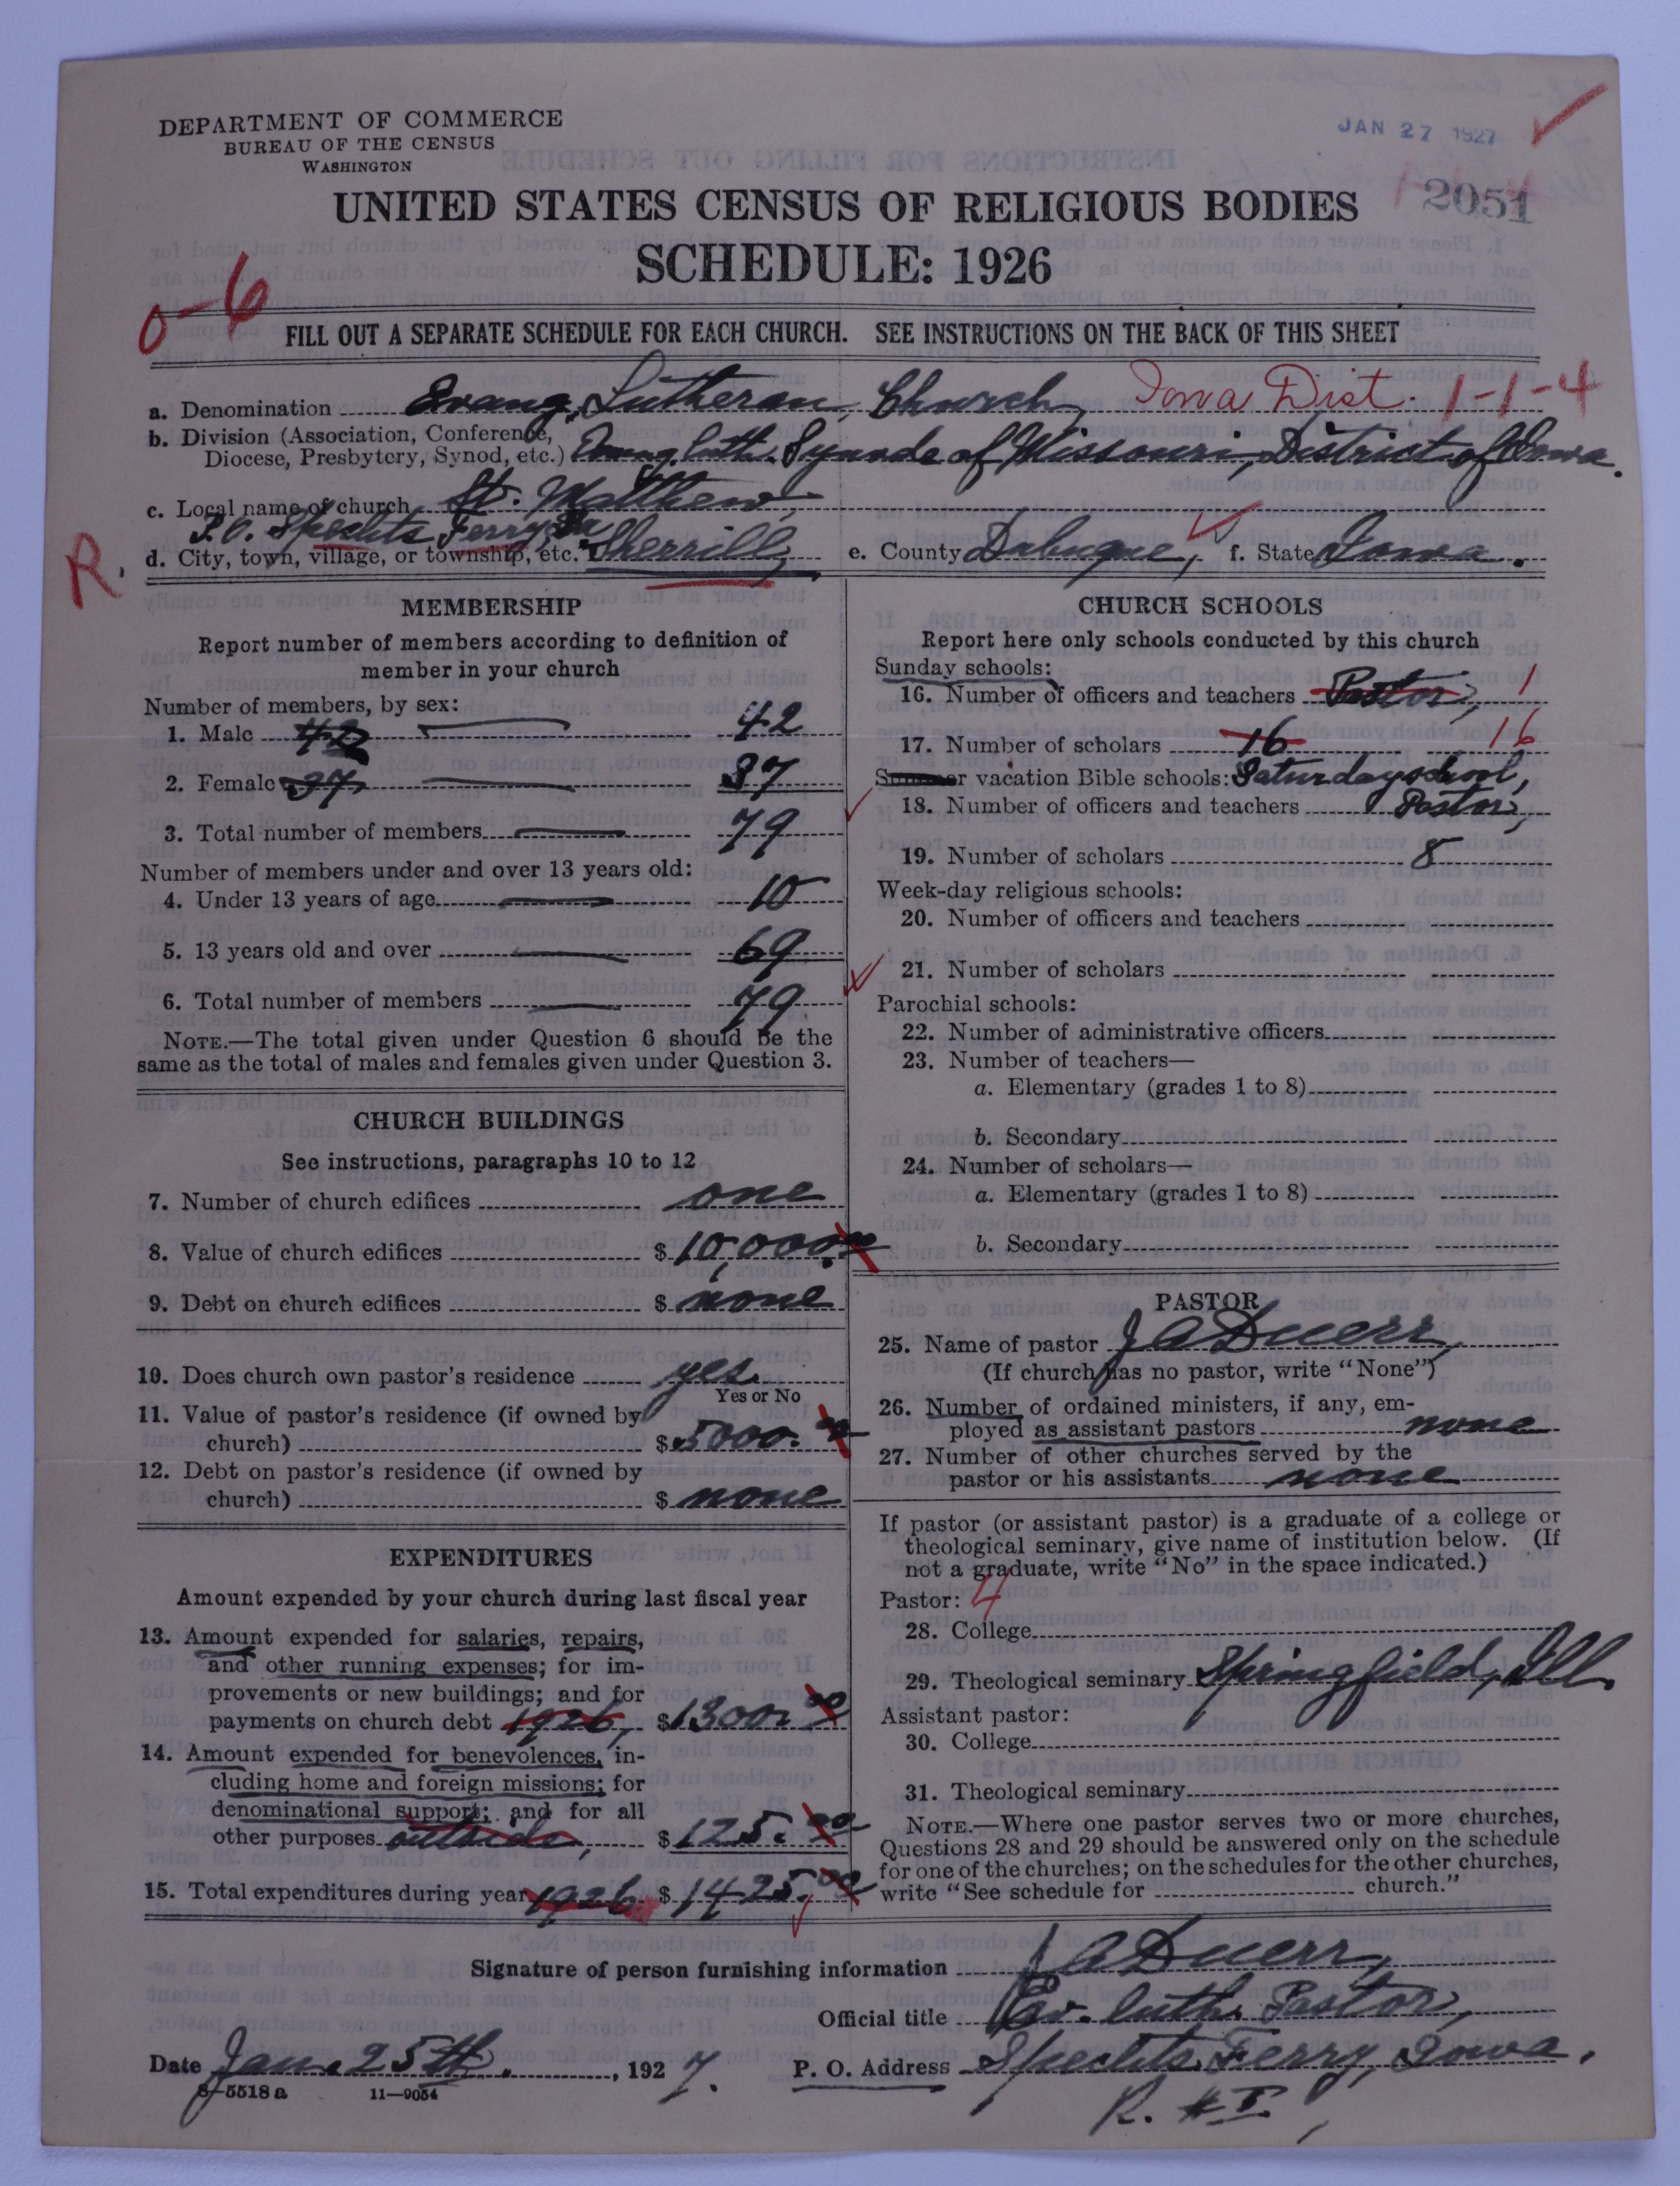 DEPARTMENT OF COMMERCE
BUREAU OF THE CENSUS
WASHINGTON
JAN 27 1927
UNITED STATES CENSUS OF RELIGIOUS BODIES
2051
SCHEDULE: 1926
0-6
FILL OUT A SEPARATE SCHEDULE FOR EACH CHURCH. SEE INSTRUCTIONS ON THE BACK OF THIS SHEET
a. Denomination Evang. Lutheran Church, Iowa Dist. 1-1-4
b. Division (Association, Conference,
Diocese, Presbytery, Synod, etc.) Evang. Luth. Synode of Missouri, District of Iowa.
c. Local name of church St. Matthew,
P.O. Spechts Ferry, Ia
R.
d. City, town, village, or township, etc. Sherrill, e. County Dubuque, f. State Iowa.
MEMBERSHIP
Report number of members according to definition of
member in your church
Number of members, by sex:
1. Male 42 42
2. Female 37 37
3. Total number of members 79
Number of members under and over 13 years old:
4. Under 13 years of age 10
5. 13 years old and over 69
6. Total number of members 79
NOTE.—The total given under Question 6 should be the
same as the total of males and females given under Question 3.
CHURCH BUILDINGS
See instructions, paragraphs 10 to 12
7. Number of church edifices one
8. Value of church edifices $ 10,000.00
9. Debt on church edifices $ none
10. Does church own pastor's residence yes.
Yes or No
11. Value of pastor's residence (if owned by
church) $ 5000.00
12. Debt on pastor's residence (if owned by
church) $ none
EXPENDITURES
Amount expended by your church during last fiscal year
13. Amount expended for salaries, repairs,
and other running expenses; for im-
provements or new buildings; and for
payments on church debt 1926, $ 1300.00
14. Amount expended for benevolences, in-
cluding home and foreign missions; for
denominational support; and for all
other purposes outside, $ 125.00
15. Total expenditures during year 1926 $ 1425.00
CHURCH SCHOOLS
Report here only schools conducted by this church
Sunday schools:
16. Number of officers and teachers Pastor, 1
17. Number of scholars 16 16
Summer vacation Bible schools: Saturday school,
18. Number of officers and teachers Pastor,
19. Number of scholars 8
Week-day religious schools:
20. Number of officers and teachers
21. Number of scholars
Parochial schools:
22. Number of administrative officers
23. Number of teachers—
a. Elementary (grades 1 to 8)
b. Secondary
24. Number of scholars—
a. Elementary (grades 1 to 8)
b. Secondary
PASTOR
25. Name of pastor J A Duerr,
(If church has no pastor, write "None")
26. Number of ordained ministers, if any, em-
ployed as assistant pastors none
27. Number of other churches served by the
pastor or his assistants none
If pastor (or assistant pastor) is a graduate of a college or
theological seminary, give name of institution below. (If
not a graduate, write "No" in the space indicated.)
Pastor: 4
28. College
29. Theological seminary Springfield, Ill.
Assistant pastor:
30. College
31. Theological seminary
NOTE.—Where one pastor serves two or more churches,
Questions 28 and 29 should be answered only on the schedule
for one of the churches; on the schedules for the other churches,
write "See schedule for church."
Signature of person furnishing information J A Duerr,
Official title Ev. Luth. Pastor,
Date Jan. 25th, 1927. P. O. Address Spechts Ferry, Iowa.
8-5518 a 11-9054
R. # I.